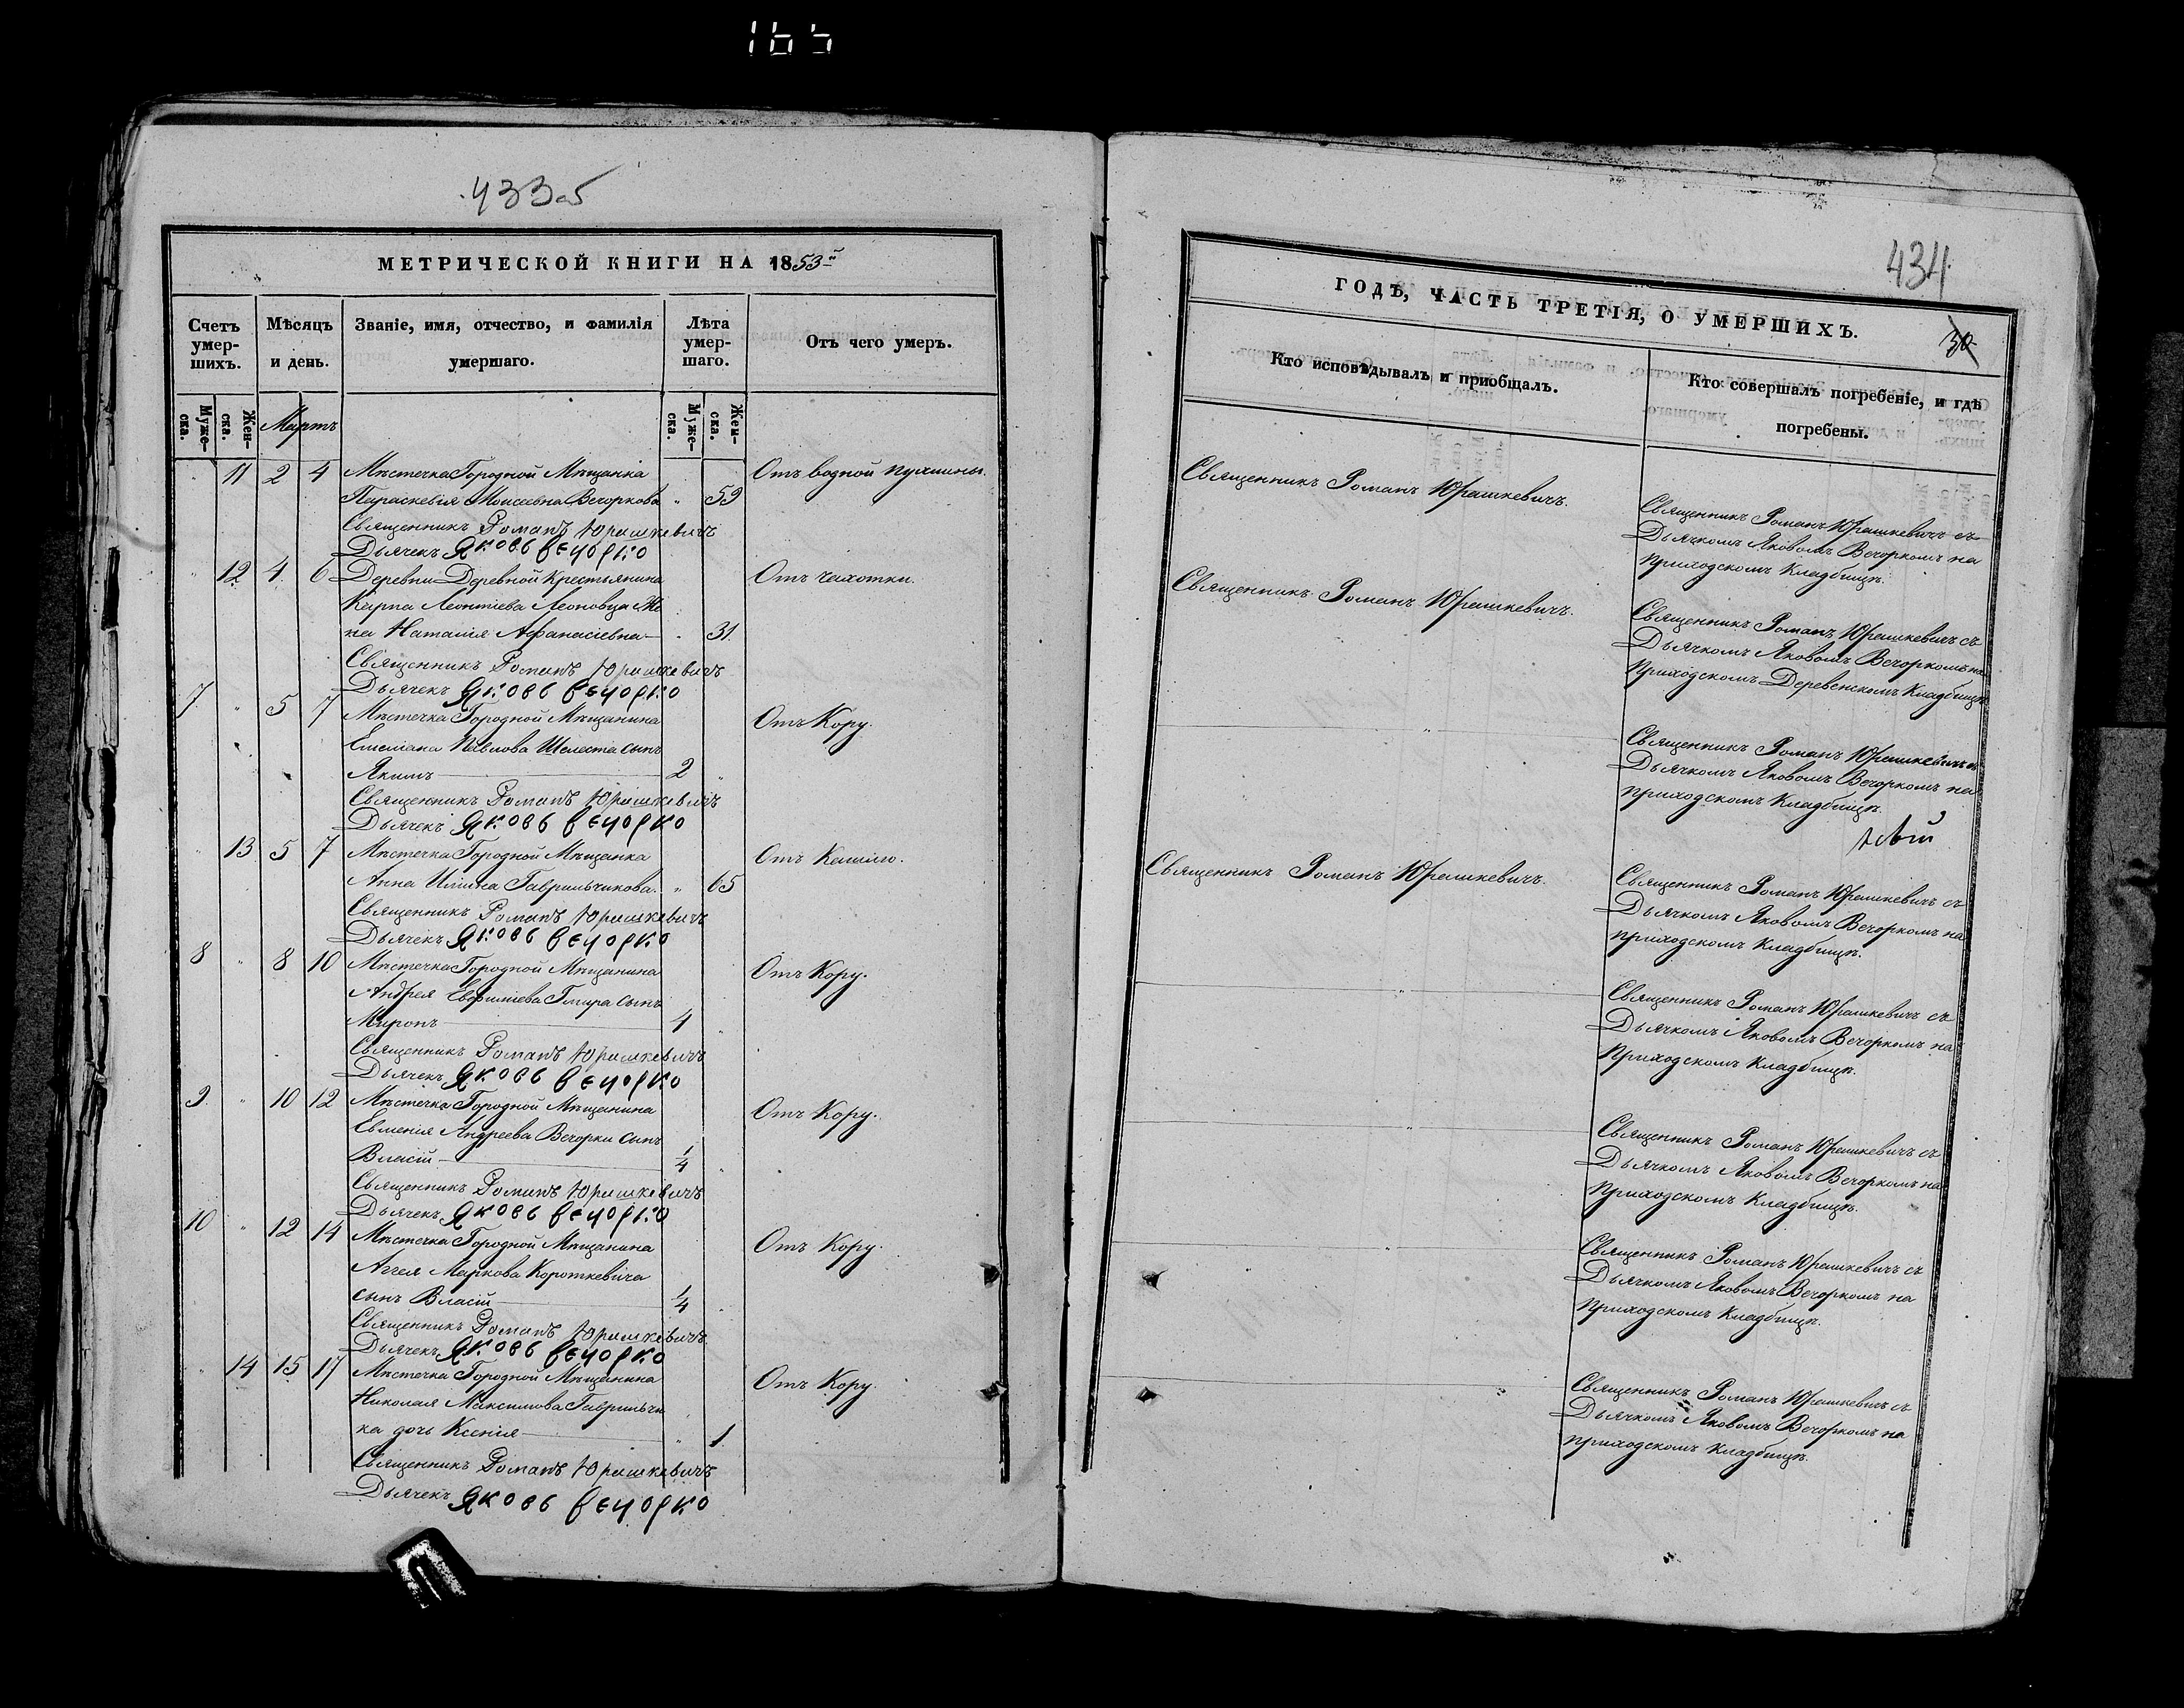 165
433об
МЕТРИЧЕСКОЙ КНИГИ НА 1853й
Счетъ умер-шихъ.
Мѣсяцъ и день.
Званіе, имя, отчество, и фамилія умершаго.
Лѣта умер-шаго.
Отъ чего умеръ.
Муже-ска.
Жен-ска.
Мартъ
Муже-ска.
Жен-ска.
" 11 2 4 Мѣстечка Городной Мѣщанка Отъ водной пухлины.
Параскевія Моисеевна Вечоркова " 59
Священникъ Романъ Юрашкевичъ
Дьячекъ Яковъ Вечорко
" 12 4 6 Деревни Деревной Крестьянина Отъ чахотки.
Карпа Леонтіева Леоновца Же
на Наталія Афанасіевна " 31.
Священникъ Романъ Юрашкевичъ
Дьячекъ Яковъ Вечорко
7 " 5 7 Мѣстечка Городной Мѣщанина Отъ Кору.
Емеліана Павлова Шелеста сынъ
Якимъ 2 "
Священникъ Романъ Юрашкевичъ
Дьячекъ Яковъ Вечорко
" 13 5 7 Мѣстечка Городной Мѣщанка Отъ Кашлю.
Анна Гаврильчикова. " 65
Священникъ Романъ Юрашкевичъ
Дьячекъ Яковъ Вечорко
8 " 8 10 Мѣстечка Городной Мѣщанина Отъ Кору.
Андрея Евфиміева сынъ
Миронъ
Священникъ Романъ Юрашкевичъ
Дьячекъ Яковъ Вечорко
9 " 10 12 Мѣстечка Городной Мѣщанина Отъ Кору.
Евменія Андреева Вечорки сынъ
Власій 1/4 "
Священникъ Романъ Юрашкевичъ
Дьячекъ Яковъ Вечорко
10 " 12 14 Мѣстечка Городной Мѣщанина Отъ Кору.
Аггея Маркова Короткевича
сынъ Власій 1/4 "
Священникъ Романъ Юрашкевичъ
Дьячекъ Яковъ Вечорко
" 14 15 17 Мѣстечка Городной Мѣщанина Отъ Кору.
Николая Максимова Гаврильчи
ка дочь Ксенія " 1
Священникъ Романъ Юрашкевичъ
Дьячекъ Яковъ Вечорко
434
30
ГОДЪ, ЧАСТЬ ТРЕТІЯ, О УМЕРШИХЪ.
Кто исповѣдывалъ и приобщалъ.
Кто совершалъ погребеніе, и гдѣ погребены.
Священникъ Романъ Юрашкевичъ.
Священникъ Романъ Юрашкевичъ съ
Дьячкомъ Яковомъ Вечоркомъ на
приходскомъ Кладбищѣ.
Священникъ Романъ Юрашкевичъ.
Священникъ Романъ Юрашкевичъ съ
Дьячкомъ Яковомъ Вечоркомъ на
Приходскомъ Деревенскомъ Кладбищѣ
"
Священникъ Романъ Юрашкевичъ съ
Дьячкомъ Яковомъ Вечоркомъ на
приходскомъ Кладбищѣ.
Священникъ Романъ Юрашкевичъ.
Священникъ Романъ Юрашкевичъ съ
Дьячкомъ Яковомъ Вечоркомъ на
приходскомъ Кладбищѣ.
"
Священникъ Романъ Юрашкевичъ съ
Дьячкомъ Яковомъ Вечоркомъ на
Приходскомъ Кладбищѣ.
"
Священникъ Романъ Юрашкевичъ съ
Дьячкомъ Яковомъ Вечоркомъ на
Приходскомъ Кладбищѣ.
"
Священникъ Романъ Юрашкевичъ съ
Дьячкомъ Яковомъ Вечоркомъ на
Приходскомъ Кладбищѣ.
Священникъ Романъ Юрашкевичъ съ
Дьячкомъ Яковомъ Вечоркомъ на
приходскомъ Кладбищѣ.